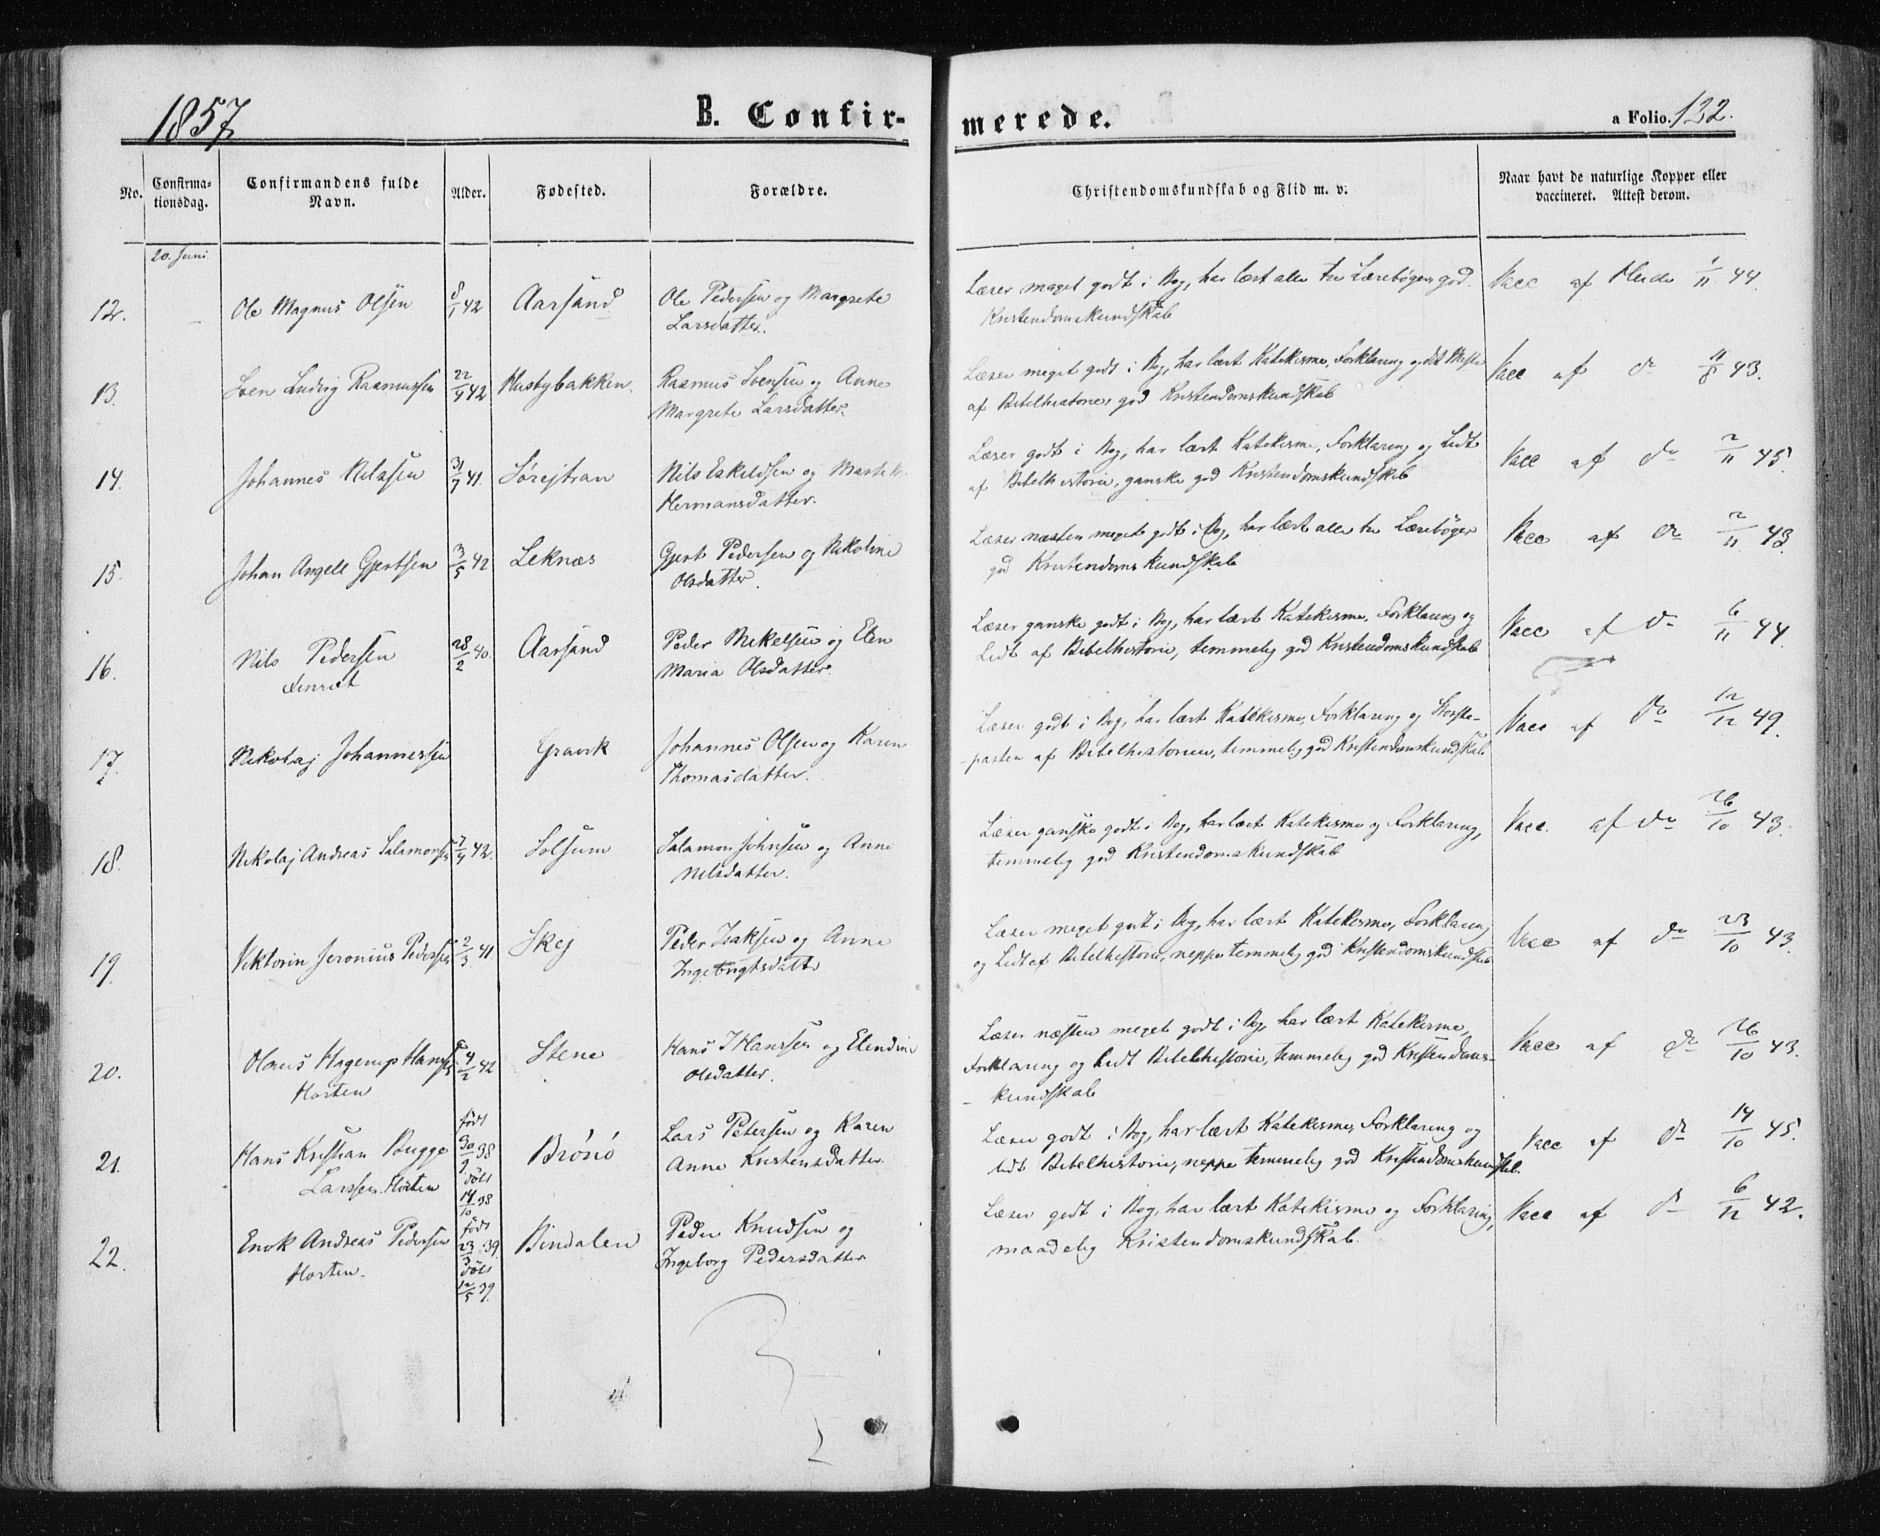 1857
B. Confir-
merede.
a Folio. 132.
No.
Confirma-
tionsdag.
Confirmandens fulde
Navn.
Alder.
Fødested.
Forældre.
Christendomskundskab og Flid m. v.
Naar havt de naturlige Kopper eller
vaccineret. Attest derom.
20. Juni.
12. Ole Magnus Olsen 8/1 42 Aarsand Ole Pedersen og Margrete
Larsdatter.
Læser meget godt i Bog, har lært alle tre Lærebøger, god
Kristendomskundskab
Vacc af 1/11 44.
13. Sven Ludvig Rasmussen 22/4 42 Hustybakken Rasmus Svensen og Anne
Margrete Larsdatter.
Læser meget godt i Bog, har lært Katekisme, Forklaring og det Meste
af Bibelhistorie, god Kristendomskundskab
Vacc af do 11/8 43.
14. Johannes Nilssen 31/7 41. Sørejstran Nils Eskeldsen og
Hermansdatter.
Læser godt i Bog, har lært Katekisme, Forklaring og Lidt
af Bibelhistorie, ganske god Kristendomskundskab
Vacc af do 2/11 45.
15. Johan Angell Gjertsen 3/5 42 Leknæs Gjert Pedersen og Nikoline
Olsdatter.
Læser næsten meget godt i Bog, har lært alle tre Lærebøger
god Kristendomskundskab
Vacc af do 2/11 43.
16. Nils Pedersen 28/2 40. Aarsand Peder Mikelsen og Elen
Maria Olsdatter.
Læser ganske godt i Bog, har lært Katekisme, Forklaring og
Lidt af Bibelhistorie, temmelig god Kristendomskundskab
Vacc af do 6/11 44.
17. Nikolaj Johannessen Gravvk Johannes Olsen og Karen
Thomasdatter.
Læser godt i Bog, har lært Katekisme, Forklaring og Største-
-parten af Bibelhistorien, temmelig god Kristendomskundskab
Vacc af do 12/12 49.
18. Nikolaj Andreas Salamonsen 7/4 42. Solsum Salamon Johnsen og Anne
Nilsdatter.
Læser ganske godt i Bog, har lært Katekisme og Forklaring,
temmelig god Kristendomskundskab
Vacc. af do 26/10 43.
19. Viktorin Jeronius Pedersen 2/3 41 Skej Peder Isaksen og Anne
Ingebrigtsdatter
Læser meget godt i Bog, har lært Katekisme, Forklaring
og Lidt af Bibelhistorie, neppe temmelig god Kristendomskundskab
Vacc af do 23/10 43.
20. Olaus Hagerup Hansen 4/2 42 Stene Hans J Hanssen og Elendine
Horten Olsdatter.
Læser næsten meget godt i Bog, har lært Katekisme,
Forklaring og Lidt Bibelhistorie, temmelig god Kristendoms-
-kundskab
Vacc af do 26/10 43.
21. Hans Kristian Bugge født 30/9 38 Brønö Lars Petersen og Karen
Larssen Horten döbt 14/10 38 Anne Kristensdatter.
Læser godt i Bog, har lært Katekisme, Forklaring og
Lidt Bibelhistorie, neppe temmelig god Kristendomskundskab.
Vacc af do 14/10 45.
22. Enok Andreas Pedersen født 23/3 39. Bindalen Peder Knudsen og
Horten. döbt 12/5 39. Ingeborg Pedersdatter
Læser godt i Bog, har lært Katekisme og Forklaring,
maadelig Kristendomskundskab.
Vacc af do 6/12 42.